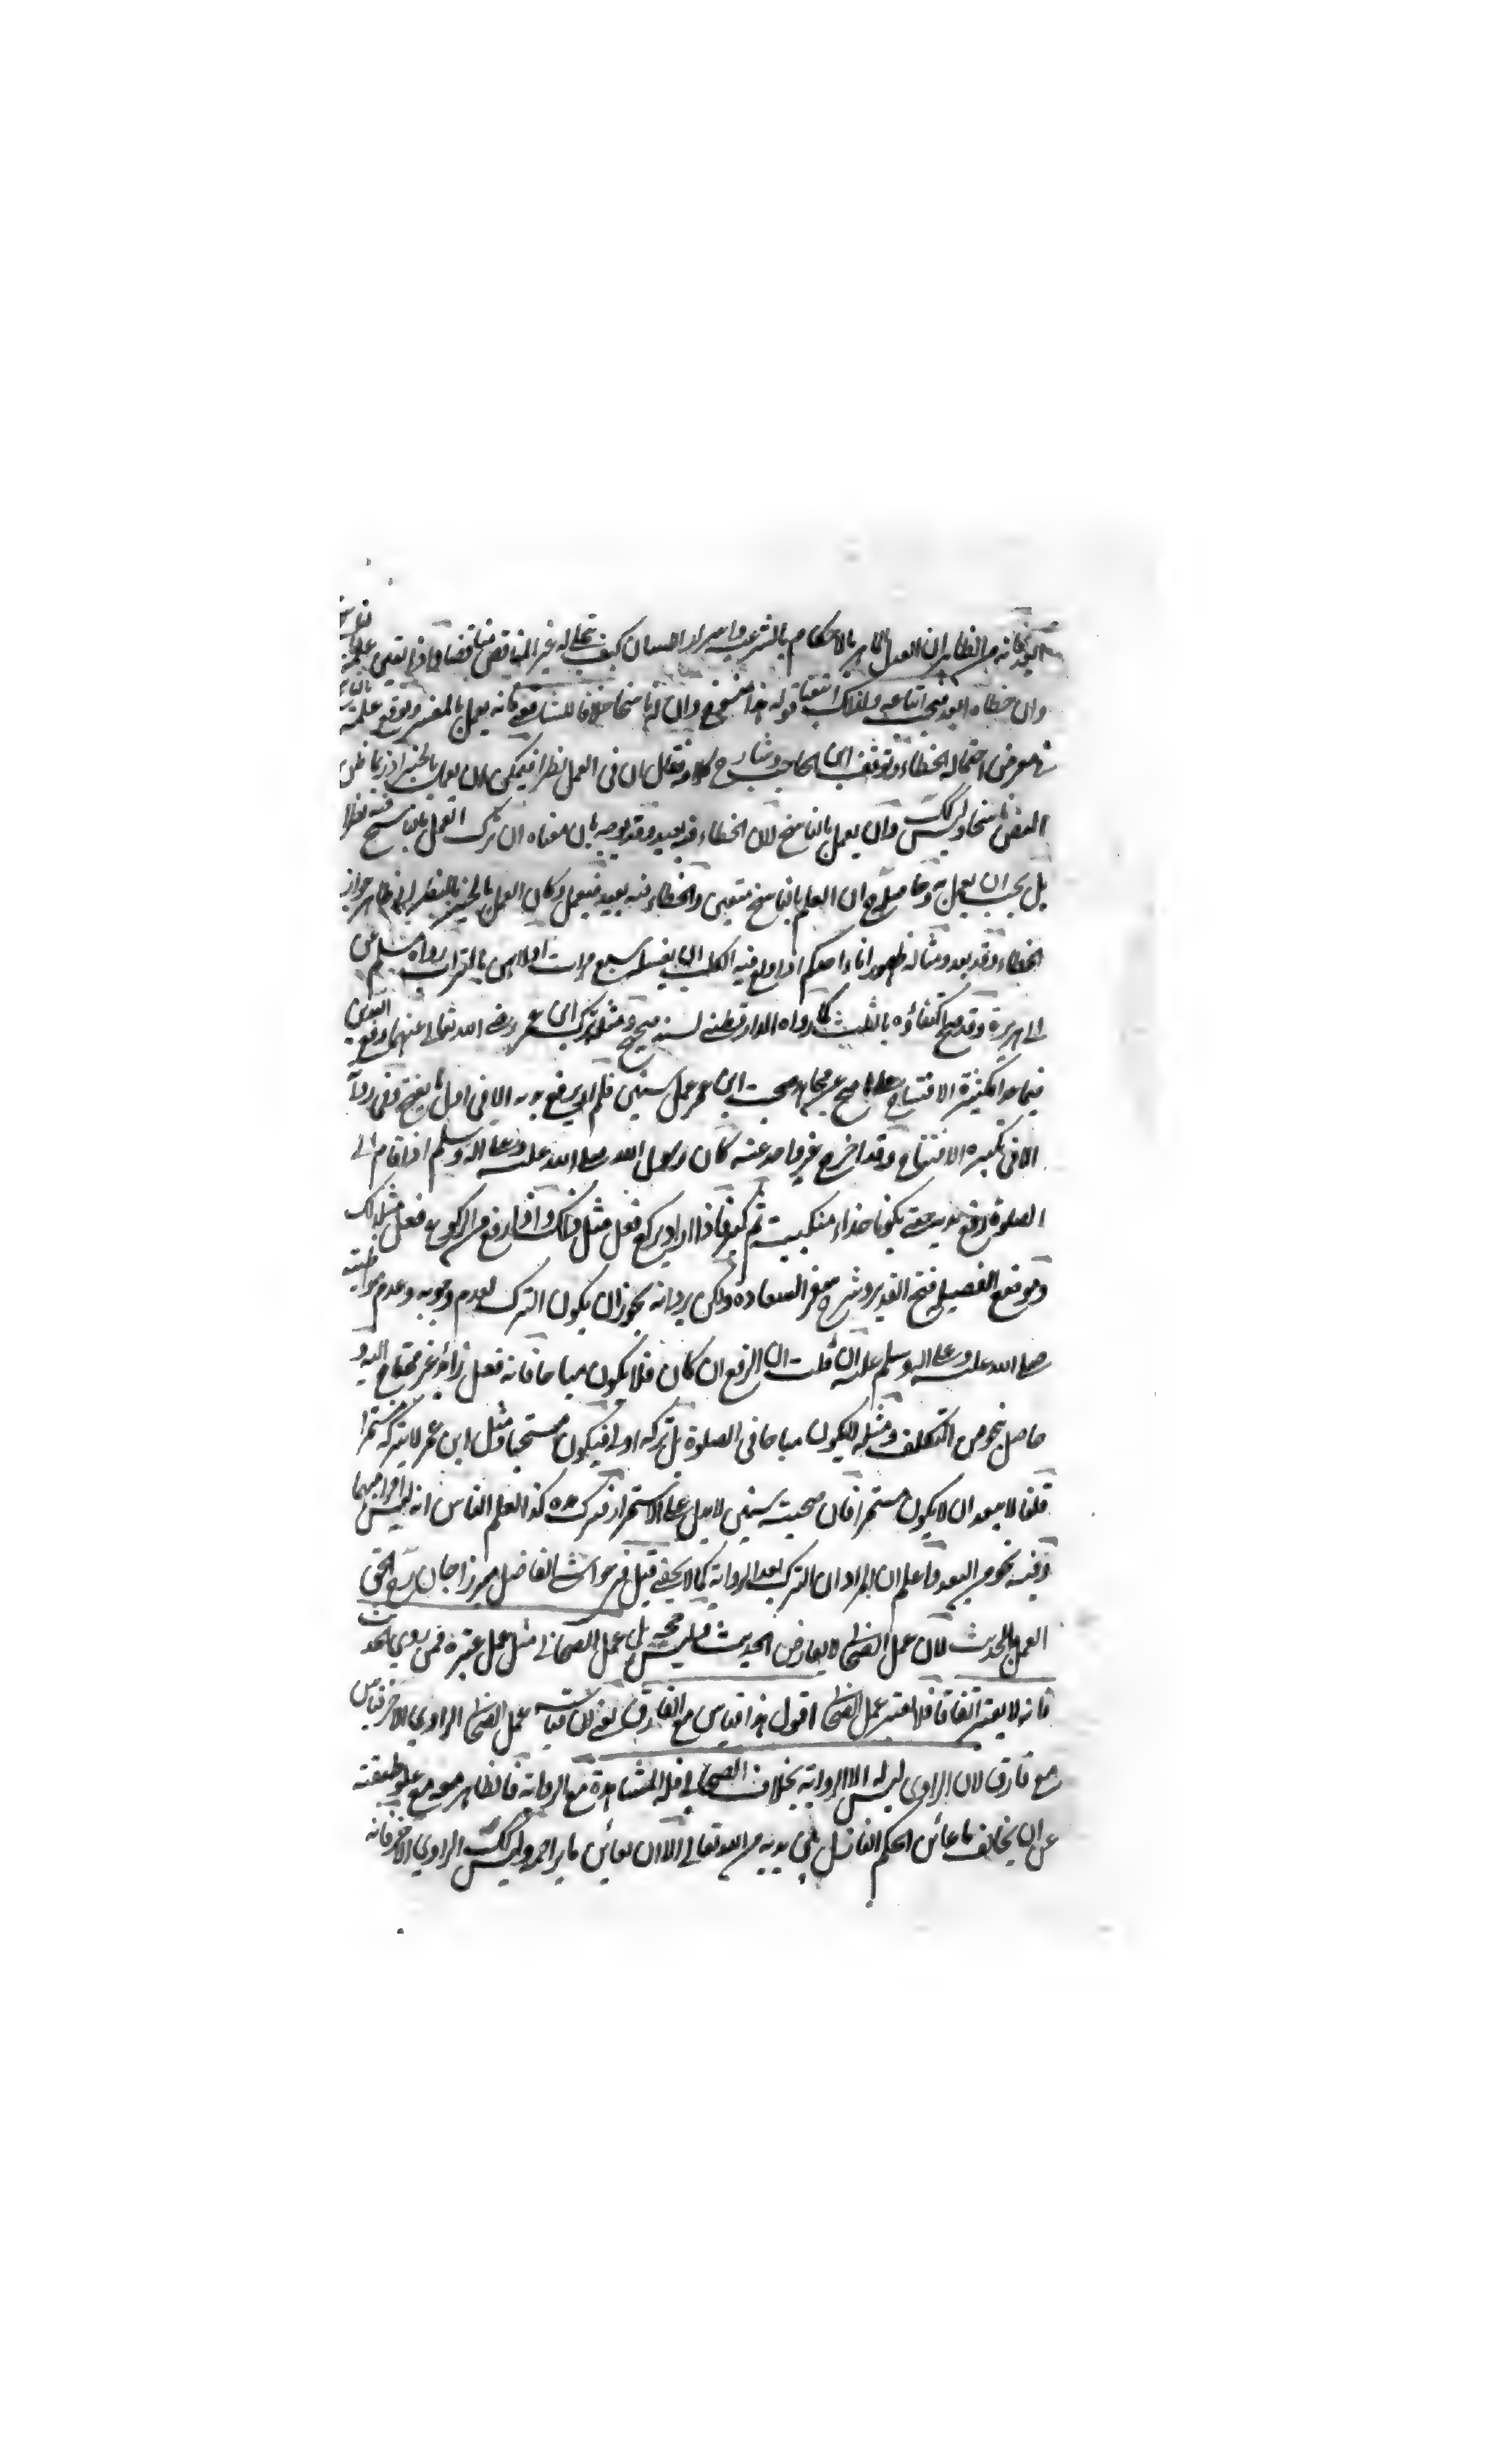 البعد فانه من الظاهر ان العدل الماهر بالاحكام بالشرعية واسرار اللسان كيف يتخاله غير المناقض مناقضا واذا تعين
وان خطاه ابعد فيجب اتباعه ولذلك اتبعنا قوله هذا منسوخ وان له ناسخا خلافا للشافعي فانه يعمل بالمفسر وتوقع علمه
في معرض احتماله الخطاء وتوقف ابن الحاجب وشارح كلامه فقال ان في العمل نظرا فيمكن ان يعمل بالخبر اذ ربما ظن
البعض ناسخا وليس كذلك وان يعمل بالناسخ لان الخطاء فيه بعيد وقد يوجه بان معناه ان ترك العمل بالناسخ فيه نظر
بل يجب ان يعمل به وحاصله ان العلم بالناسخ متعين والخطاء فيه بعيد فيعمل وكان العمل بالخبر بالنظر الى ظاهر جواز
الخطاء وقد بعد ومثاله طهور اناء احدكم اذا ولغ فيه الكلب ان يغسله سبع مرات اولاهن بالتراب رواه مسلم عن
ابي هريرة وقد صح اكتفاؤه بالثلث كما رواه الدارقطني بسند صحيح ومثله ترك ابن عمر رضي الله تعالى عنهما رفع اليدين
فيما سوى تكبيرة الافتتاح على ما صح عن مجاهد صحبت ابن عمر سنين فلم اره يرفع يديه الا في اول ما يفتتح وفي رواية
الا في تكبيره الافتتاح وقد اخرج غير واحد عنه كان رسول الله صلى الله عليه وعلى اله وسلم اذا قام الى
الصلوة رفع يديه حتى يكونا حذاء منكبيه ثم كبر فاذا اراد ان يركع فعل مثل ذلك واذا رفع من الركوع فعل مثل ذلك
وموضع التفصيل فتح القدير وشرح سفر السعادة ولكن يرد انه يجوز ان يكون الترك لعدم وجوبه وعدم مواظبته
صلى الله عليه وعلى اله وسلم عليه ان قلت ان الرفع ان كان فلا يكون مباحا فانه فعل زائد غير محتاج اليه و
حاصل بنحو من التكلف ومثله لا يكون مباحا في الصلوة بل تركه اولى فيكون مستحبا ومثل ابن عمر لا يتركه مستمرا
قلنا لا يبعد ان لا يكون مستمرا فان صحبته سنين لا يدل على الاستمرار فتركه مدة كذا ليعلم الناس انه ليس امرا مهما
وفيه نحو من البعد واعلم ان المراد ان الترك بعد الرواية كما لا يخفى قيل في حواشي الفاضل ميرزا جان رح الحق
العمل بالحديث لان عمل الصحابي لا يعارض الحديث وليس حجة بل عمل الصحابي مثل عمل غيره ممن روى الحديث
فانه لا يعتبر اتفاقا فلا يعتبر عمل الصحابي اقول هذا قياس مع الفارق يعني لان قياسه عمل الصحابي الراوي الاخر قياس
مع فارق لان الراوي ليس له الا الرواية بخلاف الصحابي فله المشاهدة مع الرواية فالظاهر معه مع علو طبقته
عن ان يخالف ما عاين الحكم النازل بين يديه من الله تعالى الا ان يعاين ما يراحمه وليس كذلك الراوي الاخر فانه